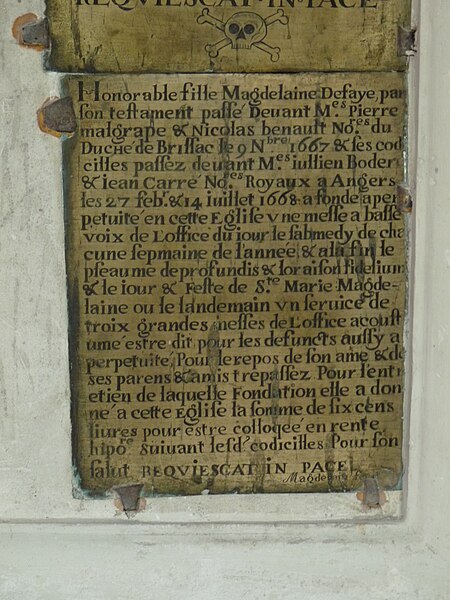 REQVIESCAT IN PACE
Honorable fille Magdelaine Defaye, par
son testament passé Deuant M.es Pierre
malgrape & Nicolas benault No.res du
DucHé de Brissac le 9 N.bre 1667 & ses cod
cilles passez deuant M.es iullien Boder
& iean Carre No.res Royaux a Angers
les 27 feb.r & 14 Iuillet 1668 a fonde a per
petuite en cette Eglise vne messe a basse
voix de L'office du iour le sabmedy de cha
cune sepmaine de l'année & a la fin le
pseaume de profundis & l'oraison fidelium
& le iour & Feste de S.te Marie Magde-
laine ou le landemain vn seruice de
troix grandes messes de L'office acoust
umé estre dit pour les defuncts aussy a
perpetuité, Pour le repos de son ame & de
ses parens & amis trepassez Pour l'entr
etien de laquelle Fondation elle a don
né a cette Eglise la somme de six cens
liures pour estre colloqée en rente
hipo.re Suiuant lesd. codicilles Pour son
salut REQVIESCAT IN PACE